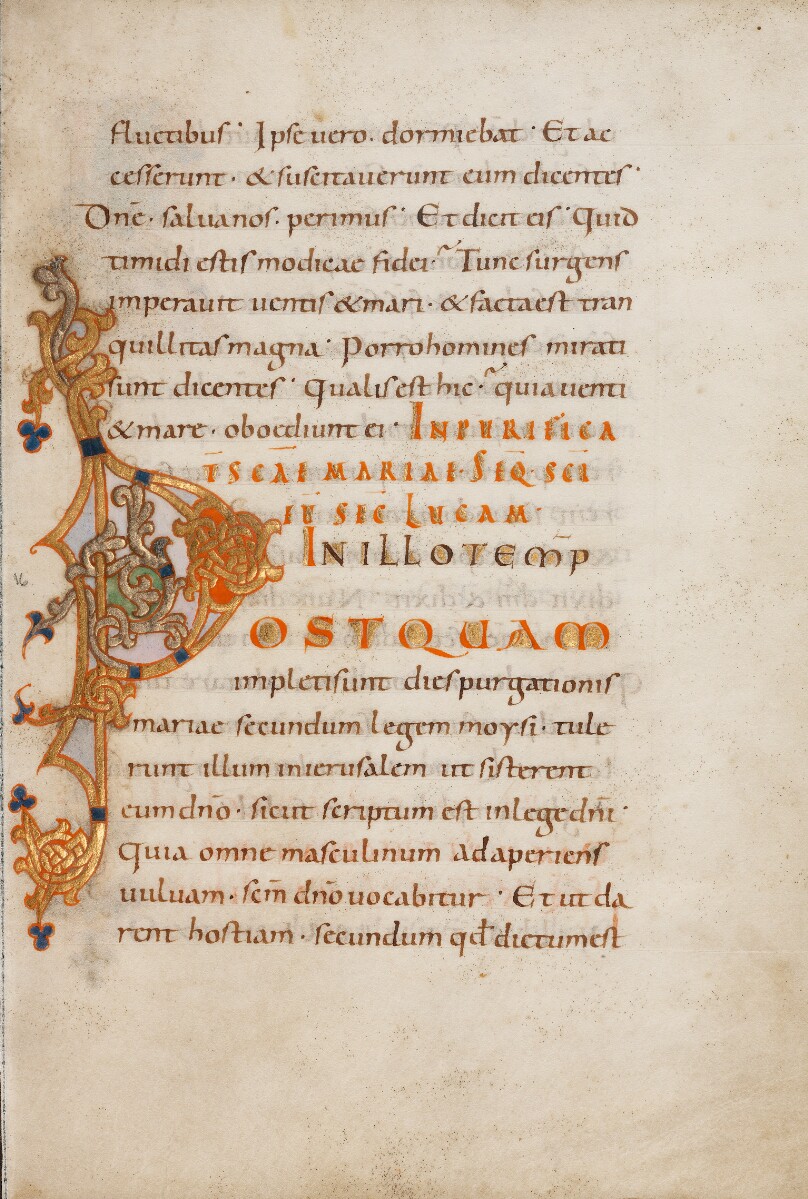 fluctibus · Ipse uero · dormiebat · Et ac
cesserunt · & suscitauerunt eum dicentes ·
Dn̄e · saluanos · perimus · Et dicit eis · Quid
timidi estis modicae fidei · Tunc surgens
imperauit uentis & mari · & facta est tran
quillitas magna · Porro homines mirati
sunt dicentes · Qualis est hic · quia uenti
& mare · oboediunt ei · IN PURIFICA
T̄ SC̄AE MARIAE · SEQ̄ · SC̄I
EU̅ SEC̄ LUCAM ·
IN ILLO TEMP̄
POSTQUAM
impleti sunt dies purgationis
mariae secundum legem moysi · tule
runt illum in ierusalem ut sisterent
eum dn̄o · sicut scriptum est in lege dn̄i ·
Quia omne masculinum adaperiens
uuluam · sc̄m dn̄o uocabitur · Et ut da
rent hostiam · secundum qđ dictum est
16